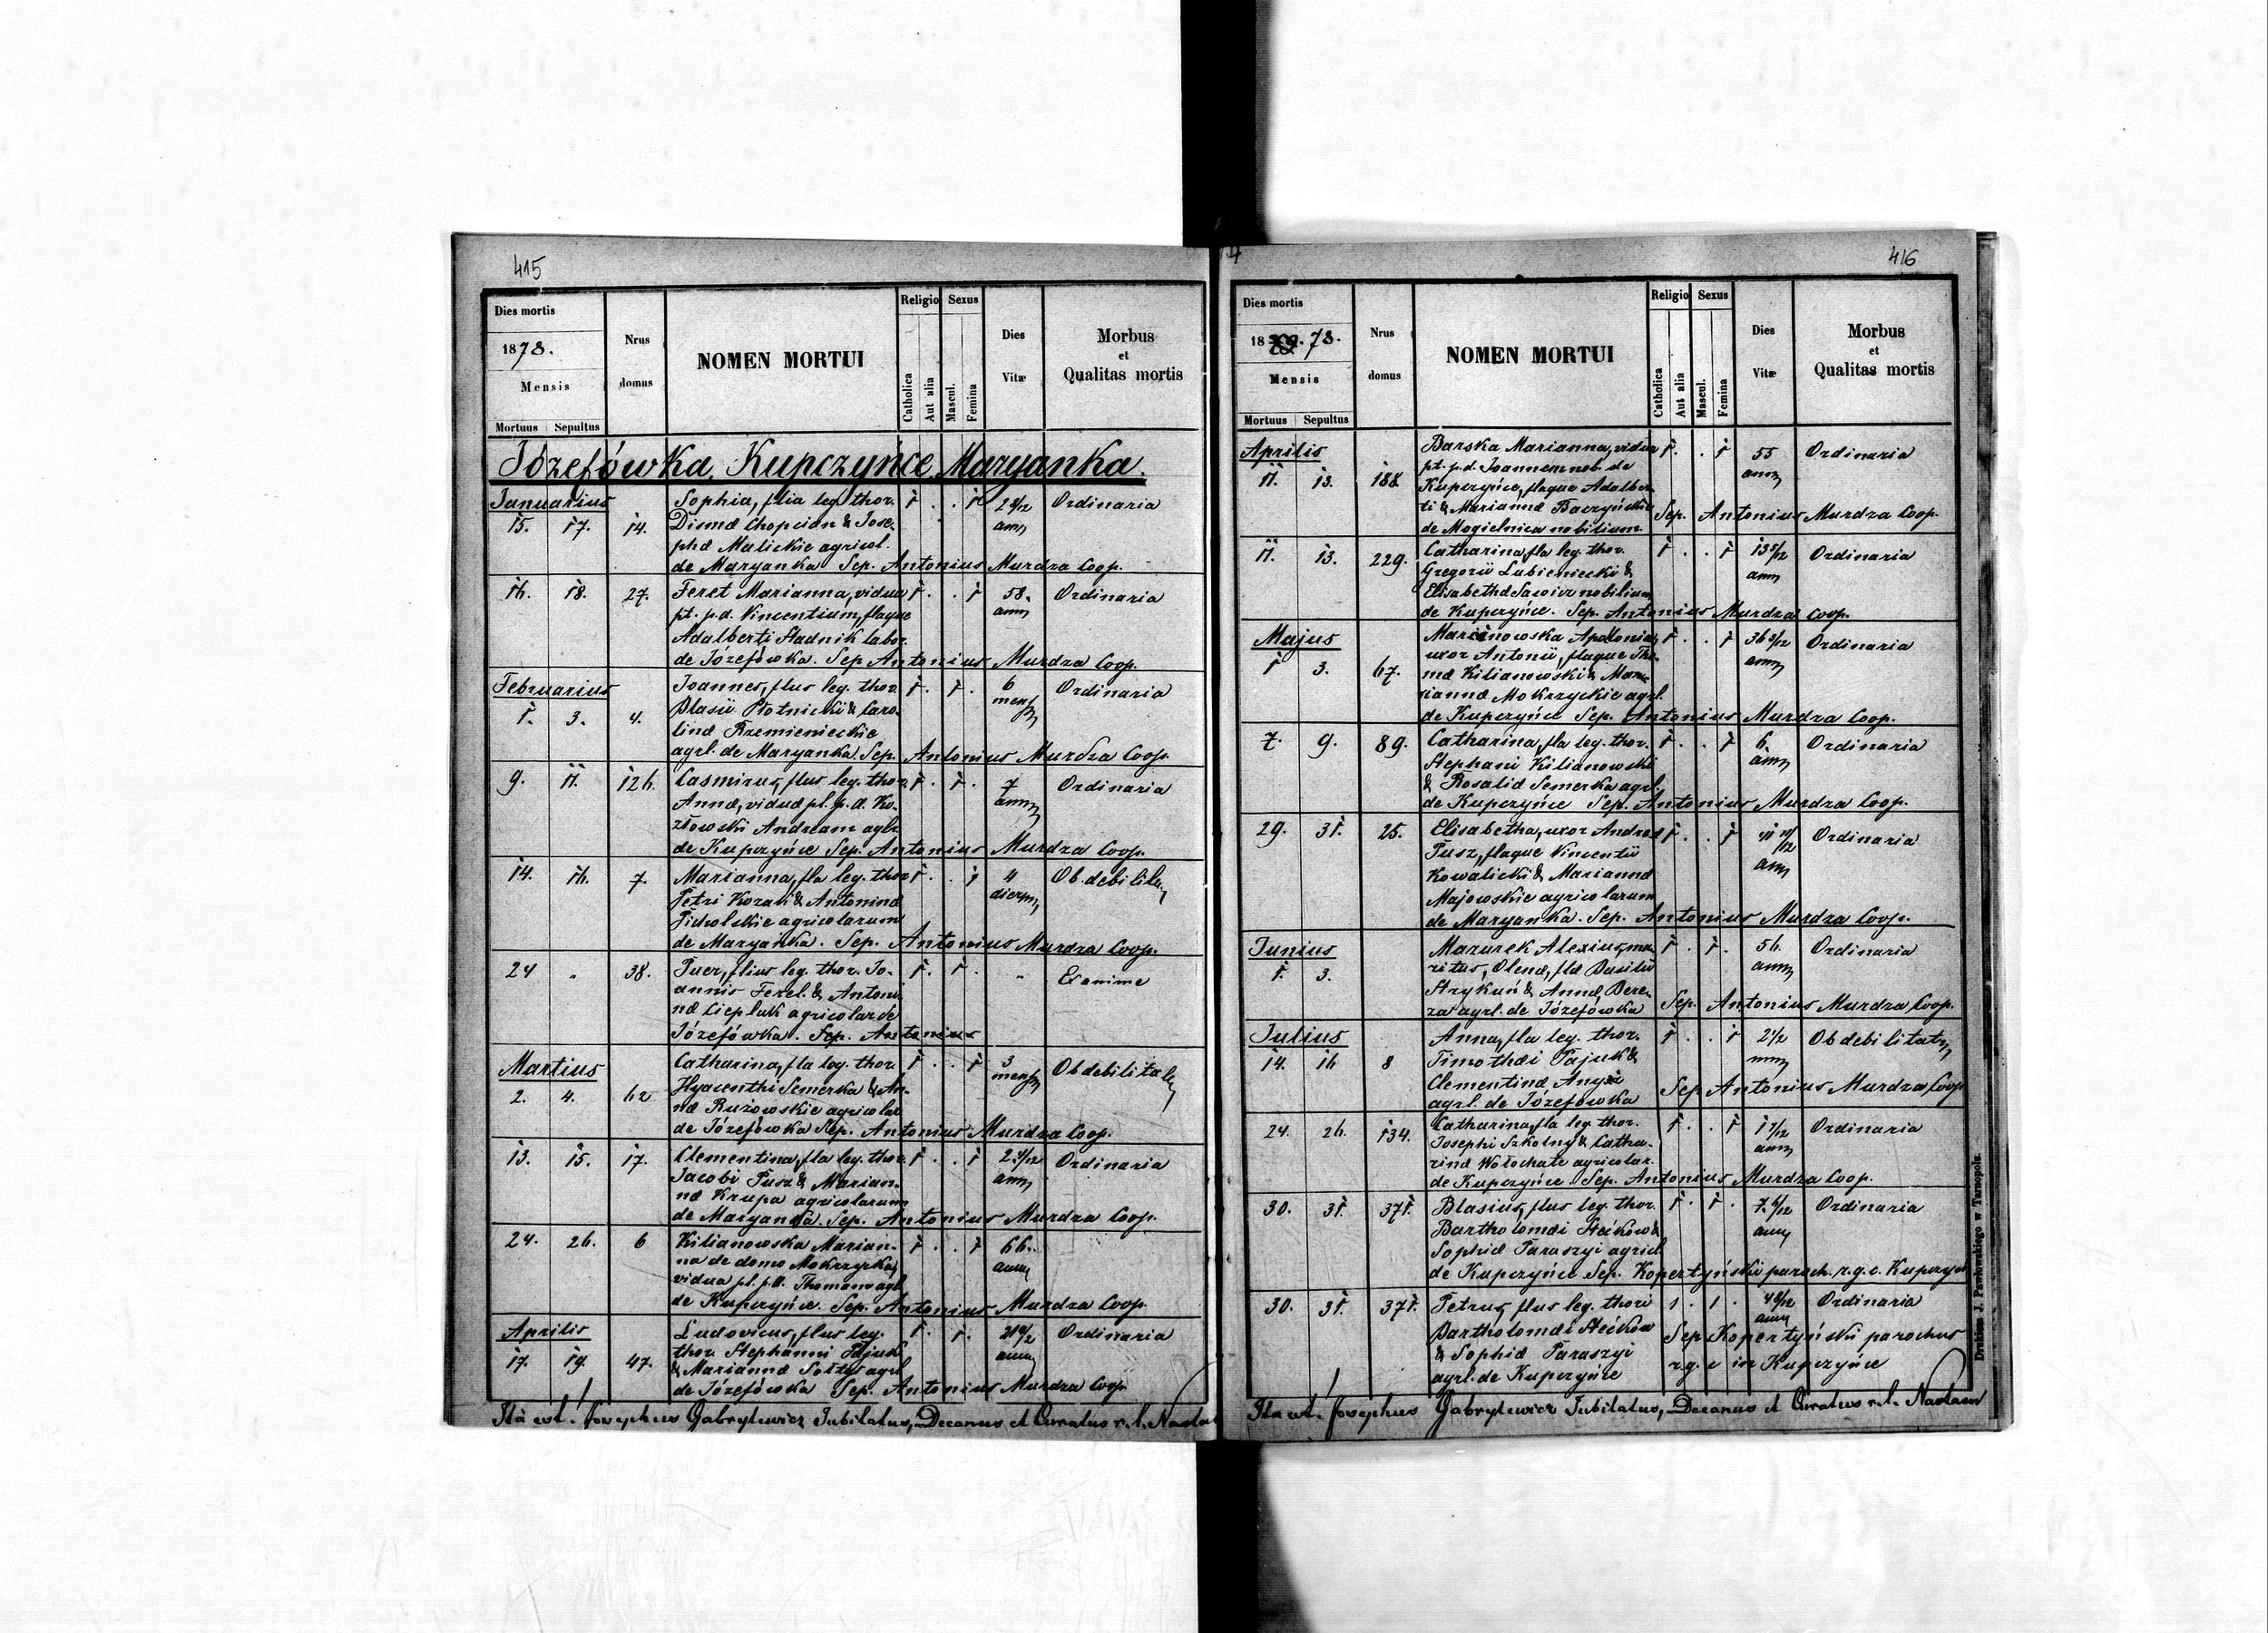 415
Dies mortis
1878.
Mensis
Mortuus Sepultus
Nrus domus
NOMEN MORTUI
Religio
Catholica
Aut alia
Sexus
Mascul.
Femina
Dies Vitæ
Morbus
et
Qualitas mortis
Józefówka, Kupczyńce, Maryanka.
Januarius
15. 17. 14. Sophia, flia leg. thor. 1 . . 1 2 Ordinaria
Dismæ Chopcian & Jose-
phæ Malickie agricol.
de Maryanka Sep. Antonius Murdza Coop.
16. 18. 27. Feret Marianna, vidua 1 . . 1 58. ann Ordinaria
pt. p.d. Vincentium, flaque
Adalberti Stadnik labor.
de Józefówka. Sep. Antonius Murdza Coop.
Februarius
1. 3. 4. Joannes, flus leg. thor. 1 . 1 . 6 mens Ordinaria
Blasii Płotnicki & Caro-
linæ Krzemienieckie
agrl. de Maryanka. Sep. Antonius Murdza Coop.
9. 11. 126. Casmirus, flus leg. thor. 1 . 1 . 7 ann Ordinaria
Annæ, viduæ pt. p.d. Ko-
złowski Andream agbr
de Kupczyńce Sep. Antonius Murdza Coop.
14. 16. 7. Marianna, fla leg. thor 1 . . 1 4 dierum Ob debilit
Petri Kozak & Antoninæ
Picholskie agricolarum
de Maryanka. Sep. Antonius Murdza Coop.
24 " 38. Puer, flius leg. thor. Jo- 1 . 1 . " Exanime
annis Feret & Antoni-
næ Ciepluk agricolar de
Józefówka. Sep. Antonius
Martius
2. 4. 62 Catharina, fla leg. thor. 1 . . 1 3 mens Ob debilitat
Hyacenthi Semerka & An-
næ Rużowskie agricolar
de Józefówka Sep. Antonius Murdza Coop.
13. 15. 17. Clementina, fla leg. thor. 1 . . 1 2 4/12 ann Ordinaria
Jacobi Pusz & Marian-
næ Krupa agricolarum
de Maryanka. Sep. Antonius Murdza Coop.
24. 26. 6 Kilianowska Marian- 1 . . 1 66. ann Ordinaria
na de domo Mokrzycka,
vidua pt. p.d. Thomam agrl
de Kupczyńce. Sep. Antonius Murdza Coop.
Aprilis
17. 19. 47. Ludovicus, flus leg. 1 . 1 . ann Ordinaria
thor. Stephanni Pajuk
& Mariannæ Sołtys agrl
de Józefówka Sep. Antonius Murdza Coop
Ita est! Josephus Gabrylewicz Jubilatus, Decanus et Curatus r.l. Nasta
416
Dies mortis
18 78.
Mensis
Mortuus Sepultus
Nrus domus
NOMEN MORTUI
Religio
Catholica
Aut alia
Sexus
Mascul.
Femina
Dies Vitæ
Morbus
et
Qualitas mortis
Aprilis
11. 13. 188 Barska Marianna, vidua 1 . . 1 55 ann Ordinaria
pt. p.d. Joannem nob. de
Kupczyńce, flaque Adalber-
ti & Mariannæ Baczyńskie
de Mogielnica nobilium Sep. Antonius Murdza Coop.
11. 13. 229. Catharina, fla leg. thor. 1 . . 1 13 5/12 ann Ordinaria
Gregorii Lubieniecki &
Elisabethæ Sawicz nobilium
de Kupczyńce. Sep. Antonius Murdza Coop.
Majus
1 3. 67. Marcinowska Apolonia, 1 . . 1 36 3/12 ann Ordinaria
uxor Antonii, flaque Tho-
mæ Kilianowski & Mar-
iannæ Mokrzyckie agrl.
de Kupczyńce Sep. Antonius Murdza Coop.
7. 9. 89. Catharina, fla leg. thor. 1 . . 1 6. ann Ordinaria
Stephani Kilianowski
& Rosaliæ Semerka agrl
de Kupczyńce Sep. Antonius Murdza Coop.
29. 31. 25. Elisabetha, uxor Andreæ 1 . . 1 ann Ordinaria
Pusz, flaque Vincentii
Kowalicki & Mariannæ
Majowskie agricolarum
de Maryanka. Sep. Antonius Murdza Coop.
Junius
1. 3. Mazurek Alexius, ma- 1 . 1 . 56. ann Ordinaria
ritus, Olenæ, fls Basilii
Strykuń & Annæ, Bere-
za agrl. de Józefówka Sep. Antonius Murdza Coop.
Julius
14. 16 8 Anna, fla leg. thor. 1 . . 1 2 1/2 mm Ob debilitat
Timothæi Pajuk &
Clementinæ
agrl. de Józefówka Sep Antonius Murdza Coop
24. 26. 134. Catharina, fla leg. thor. 1 . . 1 1 7/12 ann Ordinaria
Josephi Szkolny & Catha-
rinæ Wołochate agricolar.
de Kupczyńce Sep. Antonius Murdza Coop.
30. 31. 371. Blasius, flus leg. thor. 1 . 1 . 7 6/12 ann Ordinaria
Bartholomæi Stećków &
Sophiæ Taraszyi agricl
de Kupczyńce Sep. Kopertyński paroch. r.g.c. Kupczyn
30. 31. 371. Petrus, flus leg. thori 1 . 1 . 4 8/12 ann Ordinaria
Bartholomæi Stećków Sep. Kopertyński parochus
& Sophiæ Taraszyi r.g.c in Kupczyńce
agrl. de Kupczyńce
Ita est! Josephus Gabrylewicz Jubilatus, Decanus et Curatus r.l. Nastasow
Drukiem J. Pawłowskiego w Tarnopolu.